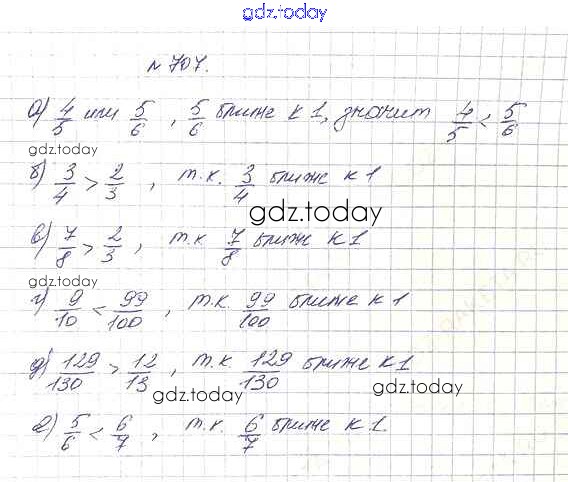 gdz.today
№ 707.
а) 4/5 или 5/6, 5/6 ближе к 1, значит 4/5 < 5/6
gdz.today
б) 3/4 > 2/3, т.к. 3/4 ближе к 1
gdz.today
в) 7/8 > 2/3, т.к 7/8 ближе к 1
gdz.today
г) 9/10 < 99/100, т.к. 99/100 ближе к 1
д) 129/130 > 12/13, т.к. 129/130 ближе к 1
gdz.today gdz.today
е) 5/6 < 6/7, т.к. 6/7 ближе к 1.